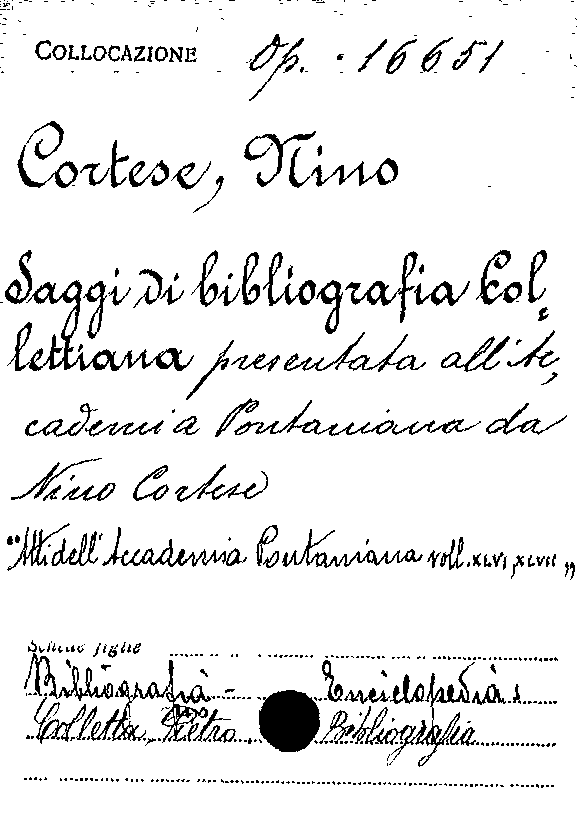 COLLOCAZIONE Op. 16651
Cortese, Nino
Saggi di bibliografia Col=
lettiana presentata all'Ac,
cademia Pontaniana da
Nino Cortese
"Atti dell'Accademia Pontaniana voll. XLVI, XLVII"
Schede figlie
Bibliografia - Enciclopedia:
Colletta, Pietro. Bibliografia